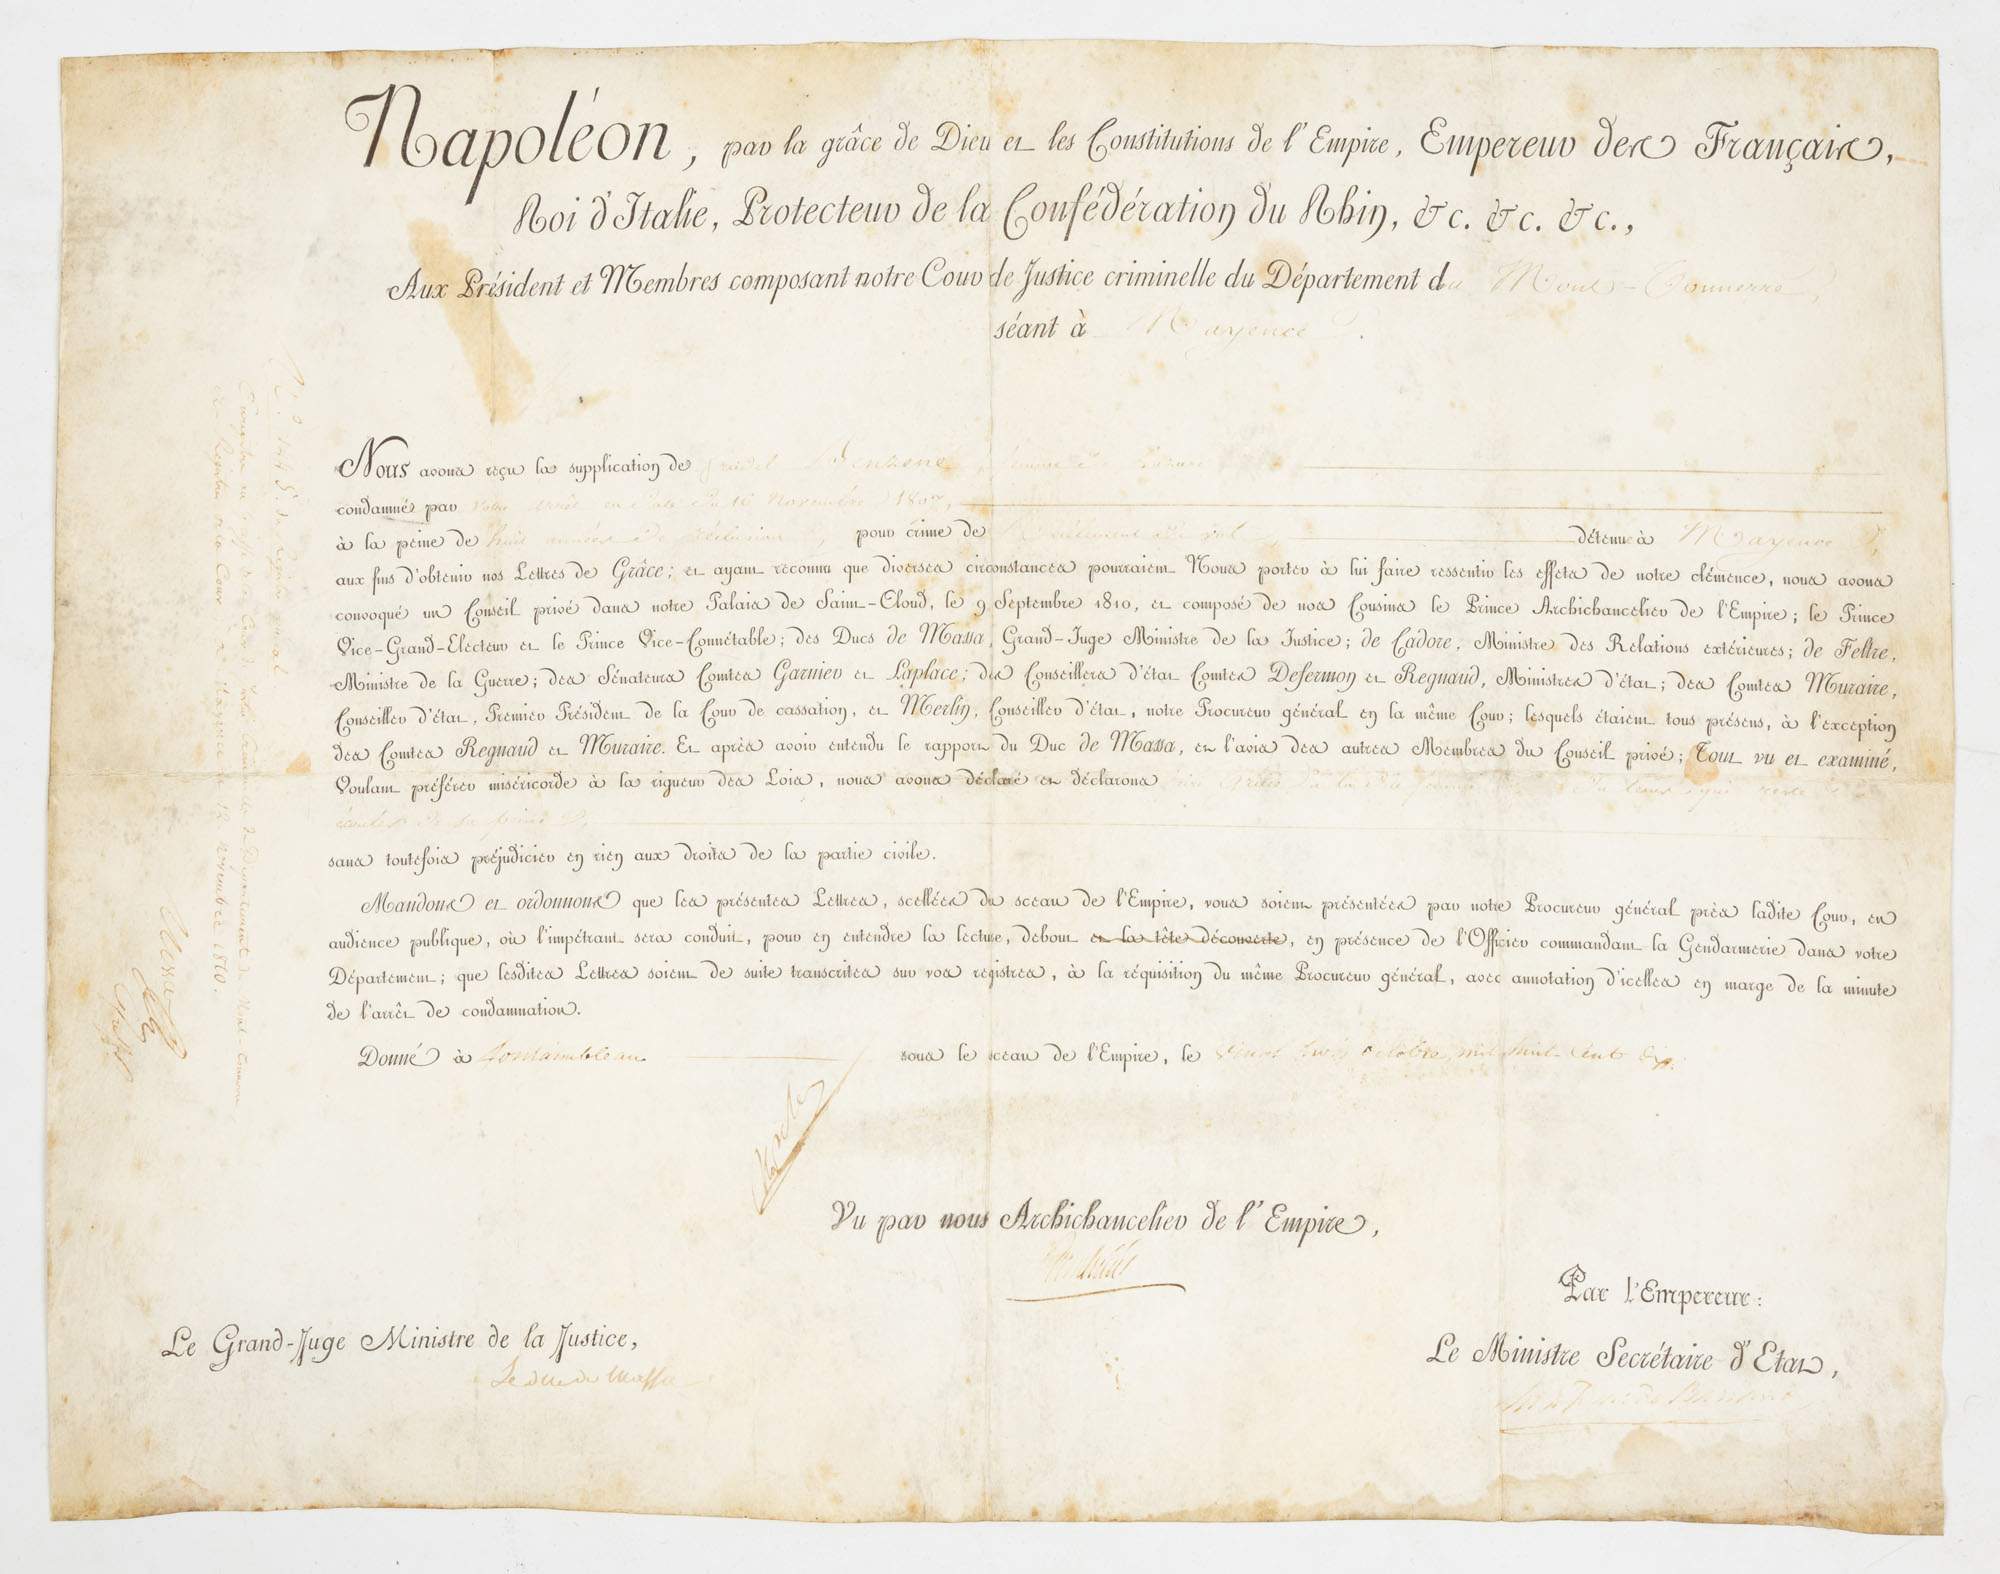 Napoléon, par la grâce de Dieu et les Constitutions de l'Empire, Empereur des Français,
Roi d'Italie, Protecteur de la Confédération du Rhin, &c. &c. &c.,
Aux Président et Membres composant notre Cour de Justice criminelle du Département du Mont-Tonnerre,
séant à Mayence.
Nous avons reçu la supplication de
condamné par votre arrêt en date du 16 Novembre 180
à la peine de huit années de réclusion, pour crime de détenue à Mayence,
aux fins d'obtenir nos Lettres de Grâce; et ayant reconnu que diverses circonstances pourraient Nous porter à lui faire ressentir les effets de notre clémence, nous avons
convoqué un Conseil privé dans notre Palais de Saint-Cloud, le 9 Septembre 1810, et composé de nos Cousins le Prince Archichancelier de l'Empire; le Prince
Vice-Grand-Electeur et le Prince Vice-Connétable; des Ducs de Massa, Grand-Juge Ministre de la Justice; de Cadore, Ministre des Relations extérieures; de Feltre,
Ministre de la Guerre; des Sénateurs Comtes Garnier et Laplace; des Conseillers d'état Comtes Defermon et Regnaud, Ministres d'état; des Comtes Muraire,
Conseiller d'état, Premier Président de la Cour de cassation, et Merlin, Conseiller d'état, notre Procureur général en la même Cour; lesquels étaient tous présens, à l'exception
des Comtes Regnaud et Muraire. Et après avoir entendu le rapport du Duc de Massa, et l'avis des autres Membres du Conseil privé; Tout vu et examiné,
Voulant préférer miséricorde à la rigueur des Lois, nous avons déclaré et déclarons du tems qui reste
de sa peine,
sans toutefois préjudicier en rien aux droits de la partie civile.
Mandons et ordonnons que les présentes Lettres, scellées du sceau de l'Empire, vous soient présentées par notre Procureur général près ladite Cour, en
audience publique, où l'impétrant sera conduit, pour en entendre la lecture, debout et la tête découverte, en présence de l'Officier commandant la Gendarmerie dans votre
Département; que lesdites Lettres soient de suite transcrites sur vos registres, à la réquisition du même Procureur général, avec annotation d'icelles en marge de la minute
de l'arrêt de condamnation.
Donné à Fontainebleau sous le sceau de l'Empire, le vingt trois octobre mil huit cent dix.
Vu par nous Archichancelier de l'Empire,
Par l'Empereur:
Le Grand-Juge Ministre de la Justice,
Le duc de Massa
Le Ministre Secrétaire d'Etat,
registre
Greffe de la Cour de Département du Mont-Tonnerre
Mayence le 12 décembre 1810.